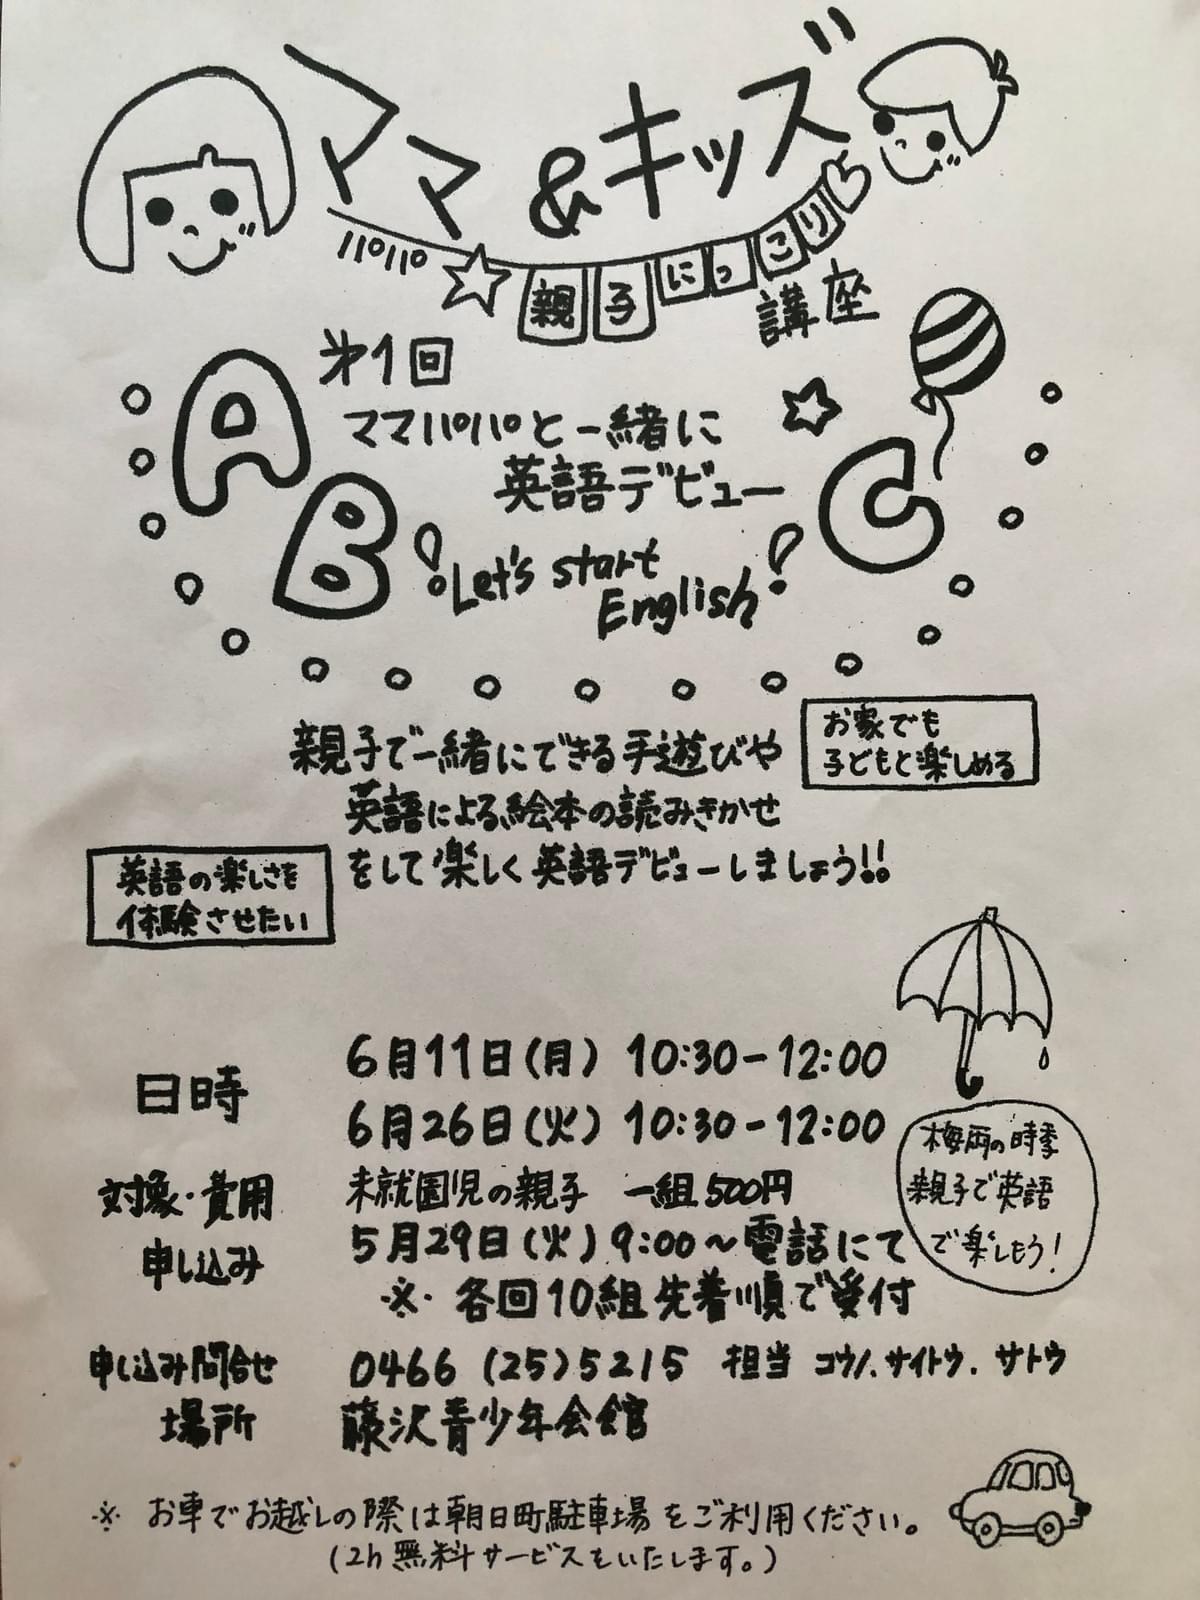 ママ&キッズ
パパ
親子にっこり
講座
第1回
ママパパと一緒に
英語デビュー
A
B
C
!Let's start
English!
親子で一緒にできる手遊びや
英語による絵本の読みきかせ
をして楽しく英語デビューしましょう!!
お家でも
子どもと楽しめる
英語の楽しさを
体験させたい
日時
6月11日(月) 10:30-12:00
6月26日(火) 10:30-12:00
対象・費用
未就園児の親子 一組500円
申し込み
5月29日(火)9:00〜電話にて
※ 各回10組先着順で受付
梅雨の時季
親子で英語
で楽しもう!
申し込み問合せ
0466 (25)5215 担当 コウノ.サイトウ.サトウ
場所
藤沢青少年会館
※ お車でお越しの際は朝日町駐車場をご利用ください。
(2h無料サービスをいたします。)